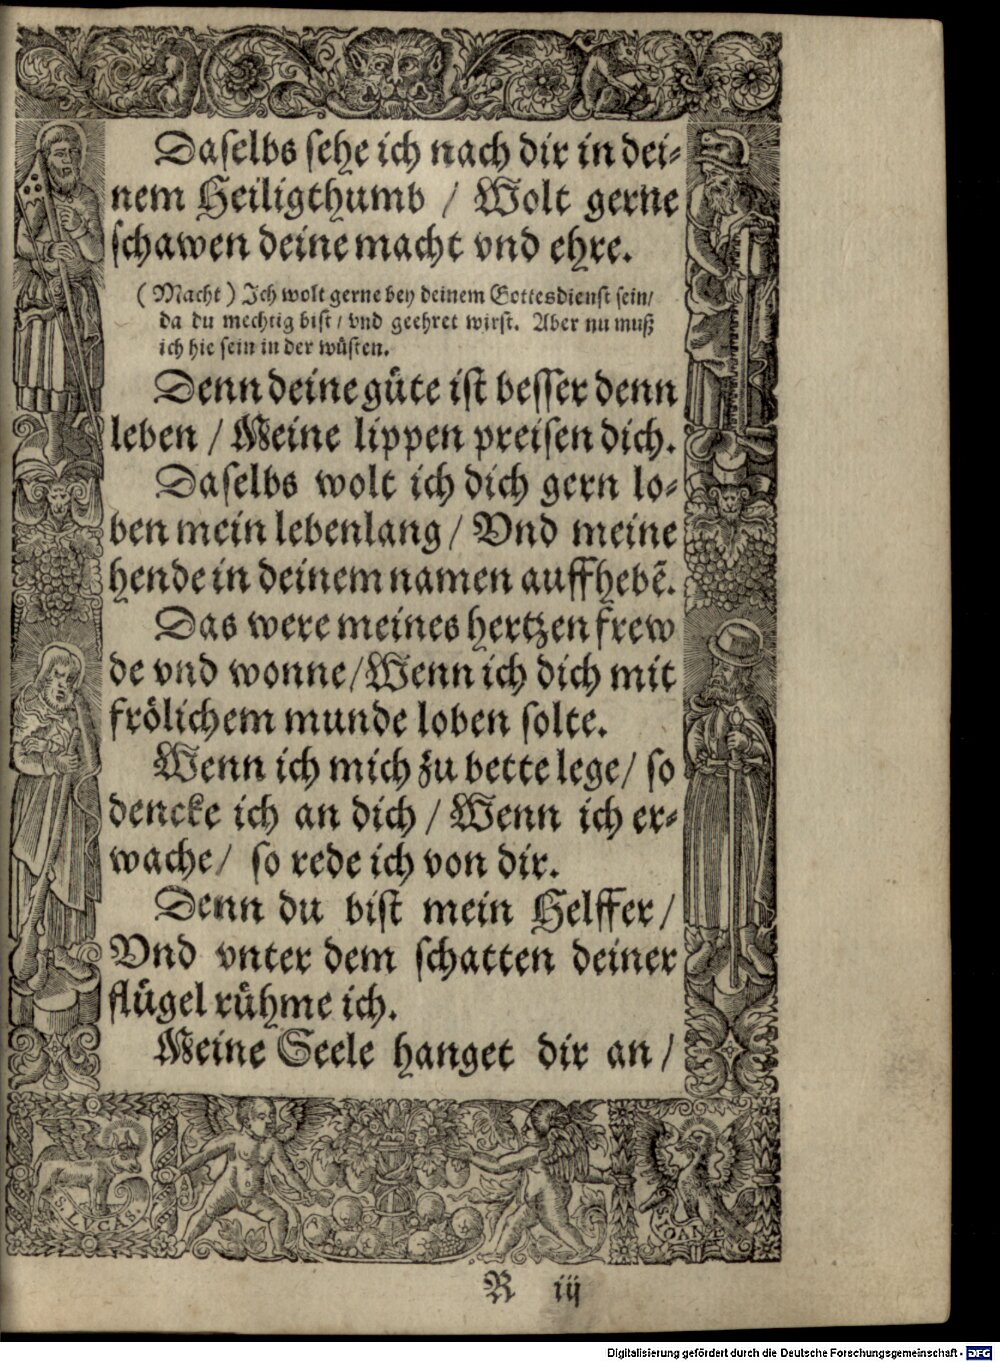 Daselbs sehe ich nach dir in dei⸗
nem Heiligthumb / Wolt gerne
schawen deine macht vnd ehre.
(Macht) Ich wolt gerne bey deinem Gottesdienst sein/
da du mechtig bist / vnd geehret wirst. Aber nu muß
ich hie sein in der wüsten.
Denn deine güte ist besser denn
leben / Meine lippen preisen dich.
Daselbs wolt ich dich gern lo⸗
ben mein lebenlang / Vnd meine
hende in deinem namen auffhebẽ.
Das were meines hertzen frew
de vnd wonne / Wenn ich dich mit
frölichem munde loben solte.
Wenn ich mich zu bette lege / so
dencke ich an dich / Wenn ich er⸗
wache / so rede ich von dir.
Denn du bist mein Helffer /
Vnd vnter dem schatten deiner
flügel rühme ich.
Meine Seele hanget dir an /
S. LVCAS.
S. IOANE
R iij
Digitalisierung gefördert durch die Deutsche Forschungsgemeinschaft - DFG